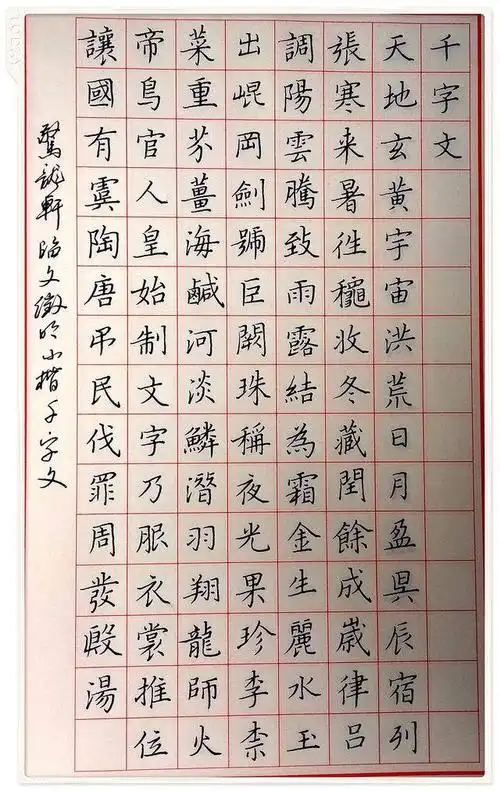 千字文
天地玄黃宇宙洪荒日月盈昃辰宿列
張寒来暑徃穐收冬藏閏餘成嵗律吕
調陽雲騰致雨露結為霜金生麗水玉
出崐岡劍號巨闕珠稱夜光果珍李柰
菜重芥薑海鹹河淡鱗潛羽翔龍師火
帝鳥官人皇始制文字乃服衣裳推位
讓國有虞陶唐吊民伐罪周發殷湯
驚龍軒臨文徵明小楷千字文